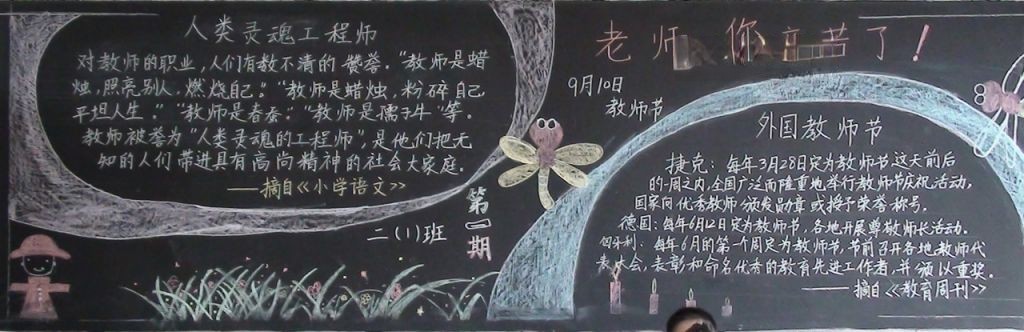 人类灵魂工程师
对教师的职业，人们有数不清的赞誉。“教师是蜡
烛，照亮别人，燃烧自己。”“教师是蜡烛，粉碎自己
平坦人生。”“教师是春蚕”“教师是孺子牛”等。
教师被誉为“人类灵魂的工程师”，是他们把无
知的人们带进具有高尚精神的社会大家庭。
——摘自《小学语文》
第一期
二（1）班
老师 你辛苦了！
9月10日
教师节
外国教师节
捷克：每年3月28日定为教师节这天前后
的一周之内，全国广泛而隆重地举行教师节庆祝活动，
国家向优秀教师颁发勋章或授予荣誉称号。
德国：每年6月12日定为教师节，各地开展尊敬师长活动。
匈牙利：每年6月的第一个周定为教师节，节前召开各地教师代
表大会，表彰和命名优秀的教育先进工作者，并颁以重奖。
——摘自《教育周刊》